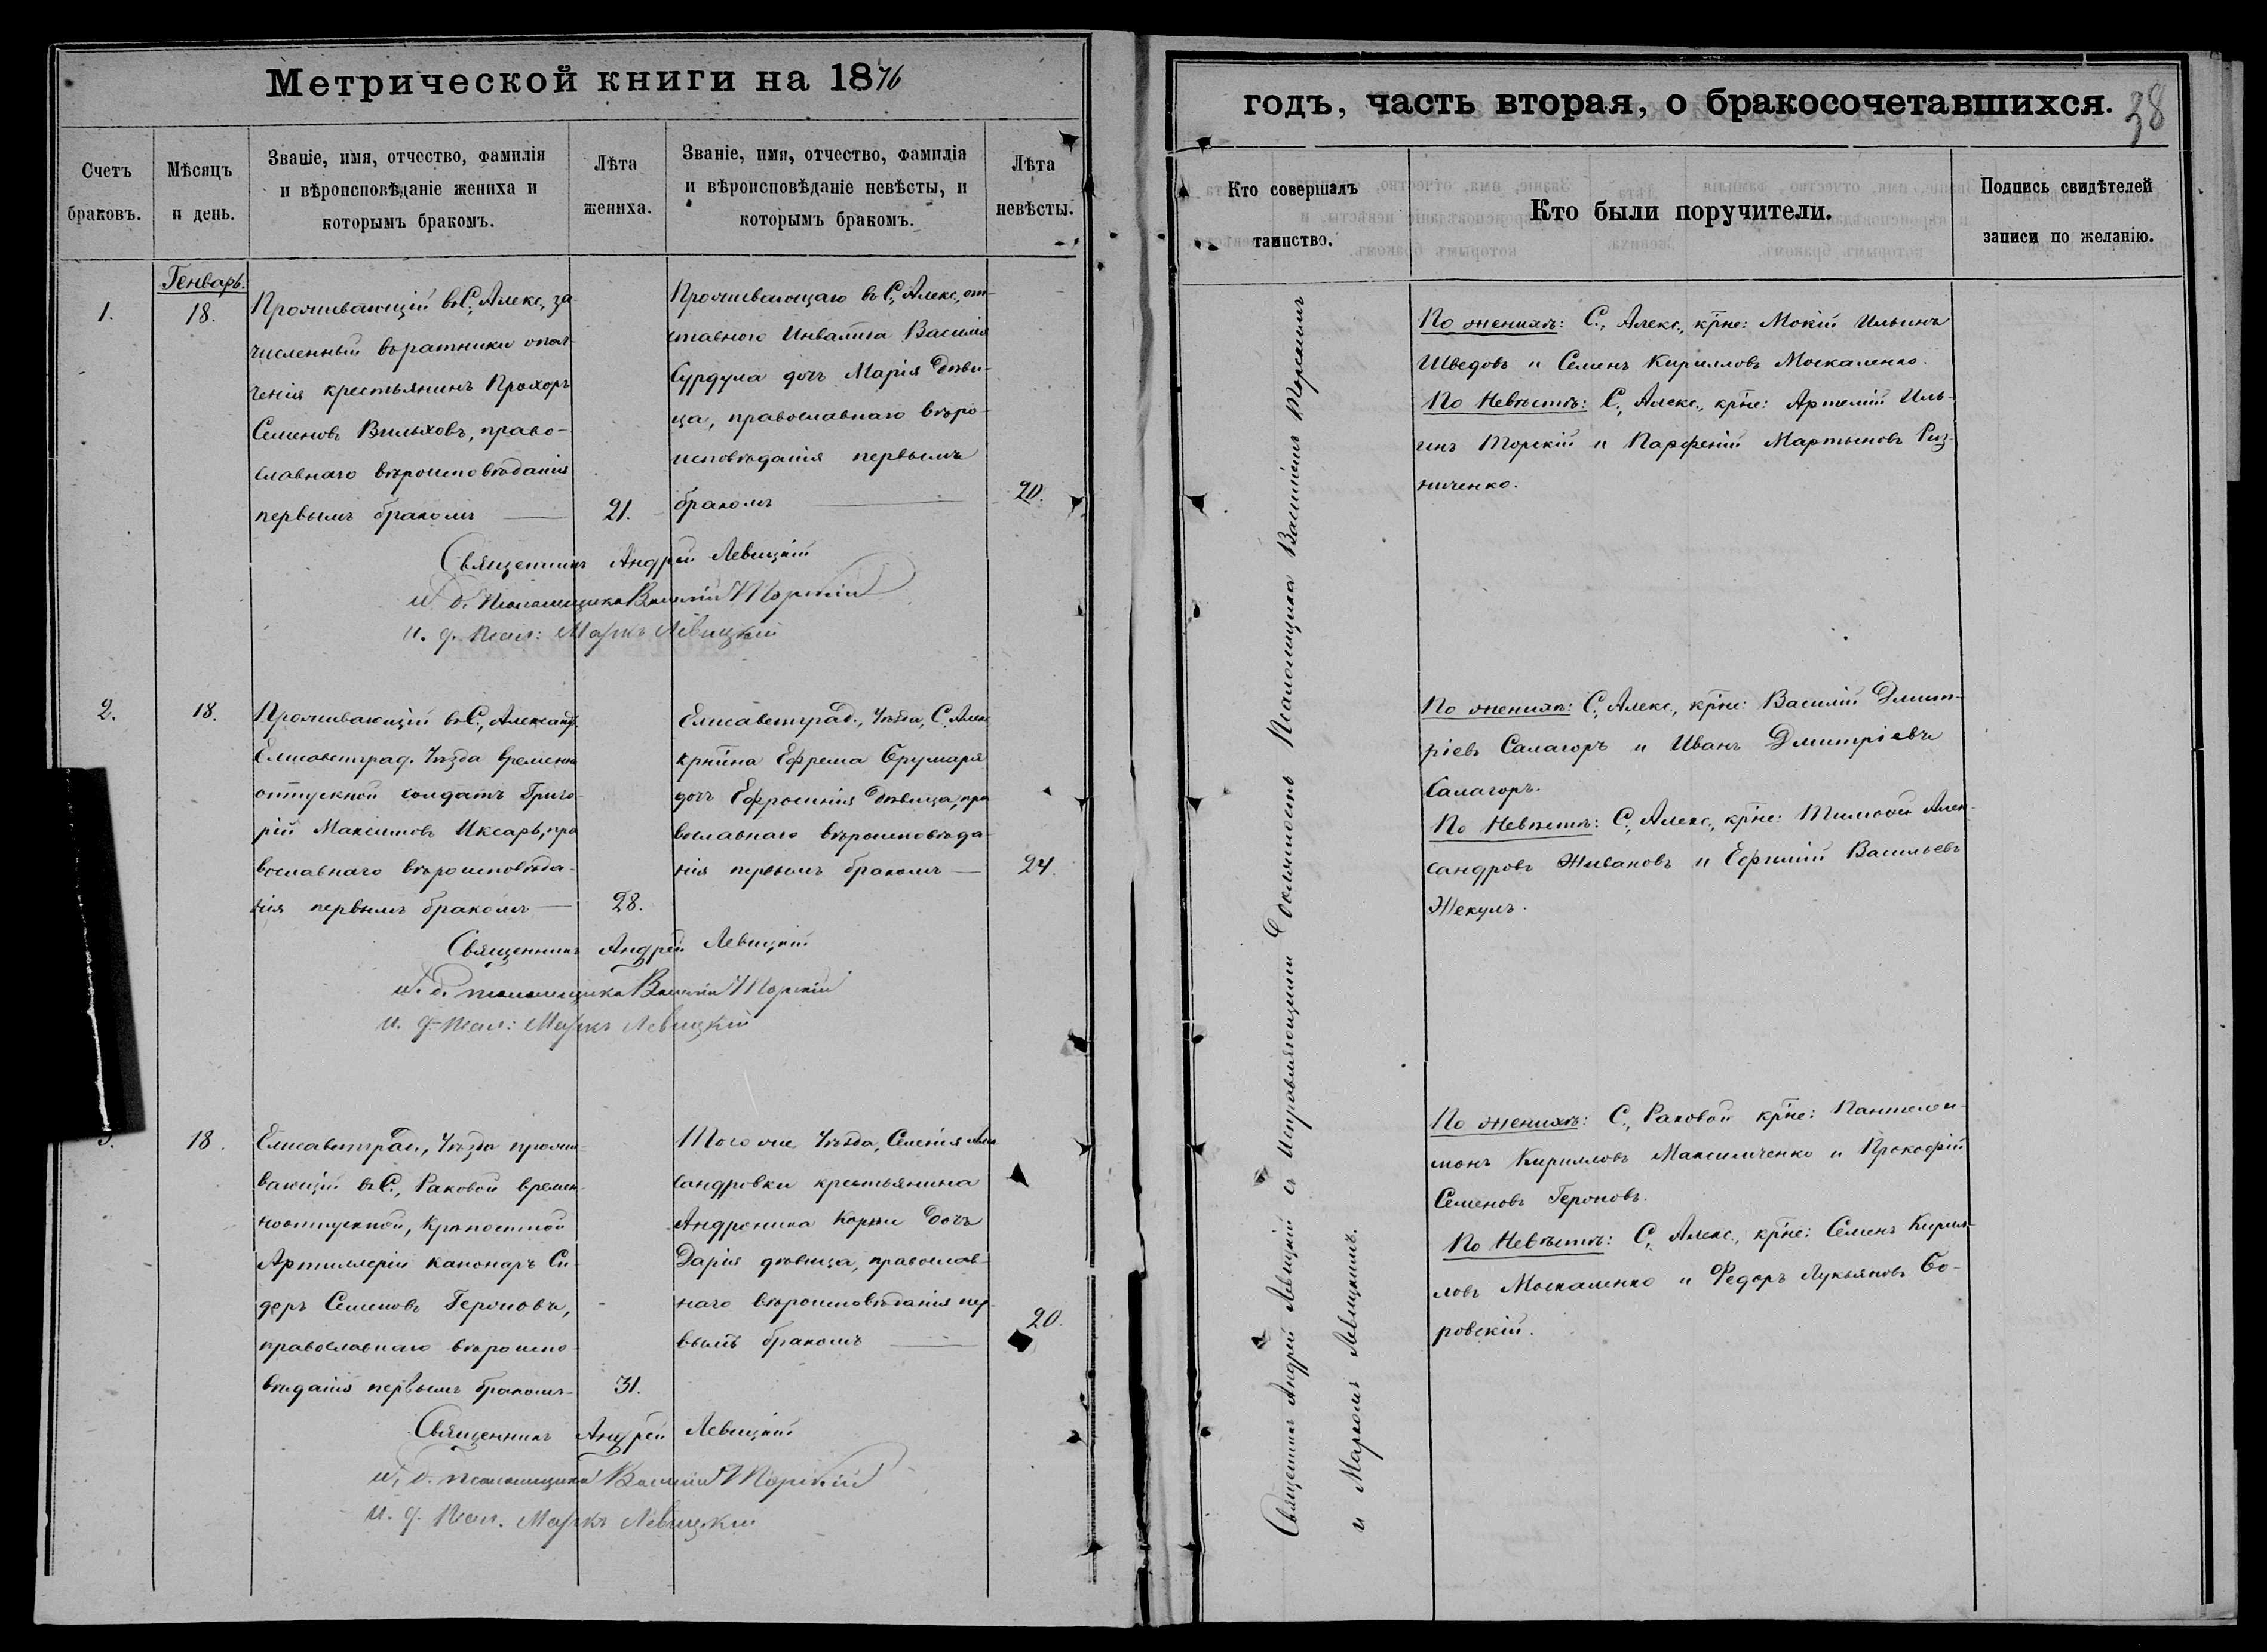 Метрической книги на 1876
Счетъ браковъ.
Мѣсяцъ и день.
Званіе, имя, отчество, фамилія и вѣроисповѣданіе жениха и которымъ бракомъ.
Лѣта жениха.
Званіе, имя, отчество, фамилія и вѣроисповѣданіе невѣсты, и которымъ бракомъ.
Лѣта невѣсты.
Генварь.
1.
18.
Проживающій въ С., Алекс., за-
численный въ ратники опол-
ченія крестьянинъ Прохоръ
Семеновъ Вильховъ, право-
славнаго вѣроисповѣданія
первымъ бракомъ
21.
Проживающаго въ С., Алекс., от-
ставного Инвалида Василія
Сурдула дочь Марія дѣви-
ца, православнаго вѣро-
исповѣданія первымъ
бракомъ
20.
Священникъ Андрей Левицкій
и. д. псаломщика Василій Торскій
и. д. псал: Маркъ Левицкій
2.
18.
Проживающій въ С., Александ.
Елисаветград. Уѣзда временно
отпускной солдатъ Григо-
рій Максимовъ Иксарь, пра
вославнаго вѣроисповѣда-
нія первымъ бракомъ
28.
Елисаветград., Уѣзда, С. Алек
крѣтина Ефрема
дочь Ефросинія дѣвица, пра
вославнаго вѣроисповѣда-
нія первымъ бракомъ
24.
Священникъ Андрей Левицкій
и. д. псаломщика Василій Торскій
и. д. псал: Маркъ Левицкій
3.
18.
Елисаветград., Уѣзда прожи-
вающій въ С., Раковой времен-
ноотпускной, Крѣпостной
Артиллеріи канониръ Си-
доръ Семеновъ Героновъ,
православнаго вѣроиспо-
вѣданія первымъ бракомъ
31.
Того же Уѣзда, Селенія Алек
сандровки крестьянина
Андроника Коржи дочь
Дарія дѣвица, православ-
наго вѣроисповѣданія пер-
вымъ бракомъ
20.
Священникъ Андрей Левицкій
и. д. псаломщика Василій Торскій
и. д. псал. Маркъ Левицкій
годъ, часть вторая, о бракосочетавшихся.
38
Кто совершалъ таинство.
Кто были поручители.
Подпись свидѣтелей записи по желанію.
Священникъ Андрей Левицкій съ Исправляющими Должность Псаломщика Василіемъ Торскимъ
и Маркомъ Левицкимъ.
По женихѣ: С., Алекс., кр̃не: Мокій Ильинъ
Шведовъ и Семенъ Кирилловъ Москаленко.
По Невѣстѣ: С., Алекс., кр̃не: Артемій Иль-
инъ Торскій и Парфеній Мартыновъ Риз-
ниченко.
По женихѣ: С., Алекс., кр̃не: Василій Дмит-
ріевъ Салагоръ и Иванъ Дмитріевъ
Салагоръ.
По Невѣстѣ: С., Алекс., кр̃не: Тимофѣй Алек-
сандровъ Живановъ и Ефимій Васильевъ
Жекулъ.
По женихѣ: С., Раковой кр̃не: Пантелей-
монъ Кирилловъ Максимченко и Прокофій
Семеновъ Героновъ.
По Невѣстѣ: С., Алекс., кр̃не: Семенъ Кирил-
ловъ Москаленко и Федоръ Лукьяновъ Бо-
ровскій.